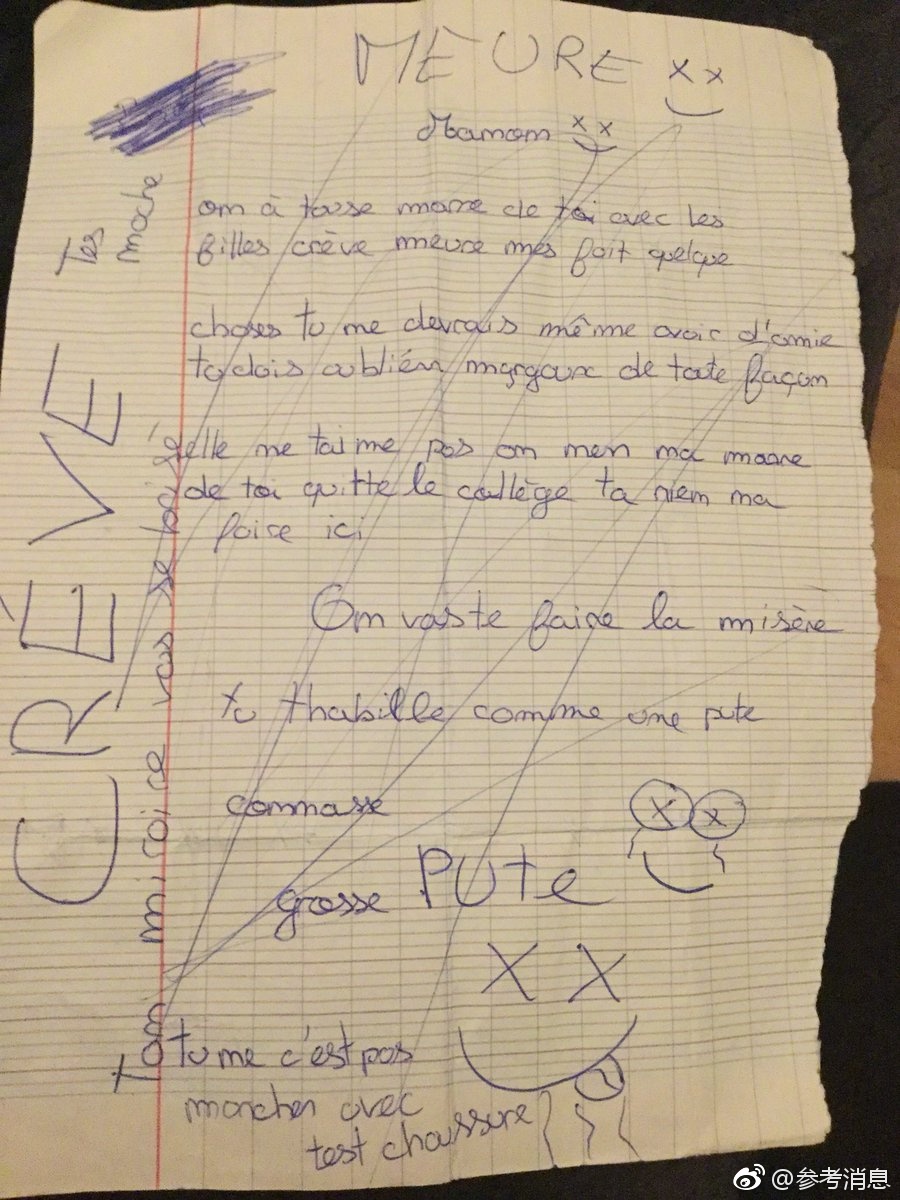 MEURE
Mamam
om à tousse marre de toi avec les
filles crève meure mes fait quelque
choses tu me devrais même avoir d'amie
tu dois oublién margaux de toute façon
elle ne taime pas on men ma marre
de toi quitte le collège ta niem ma
foire ici
Om vas te faire la misère
tu thabille comme une pute
commasse
grosse PUte
tu me c'est pas
marcher avec
test chaussure
Tes
moche
CRÈVE
tom miroire vas se
@参考消息